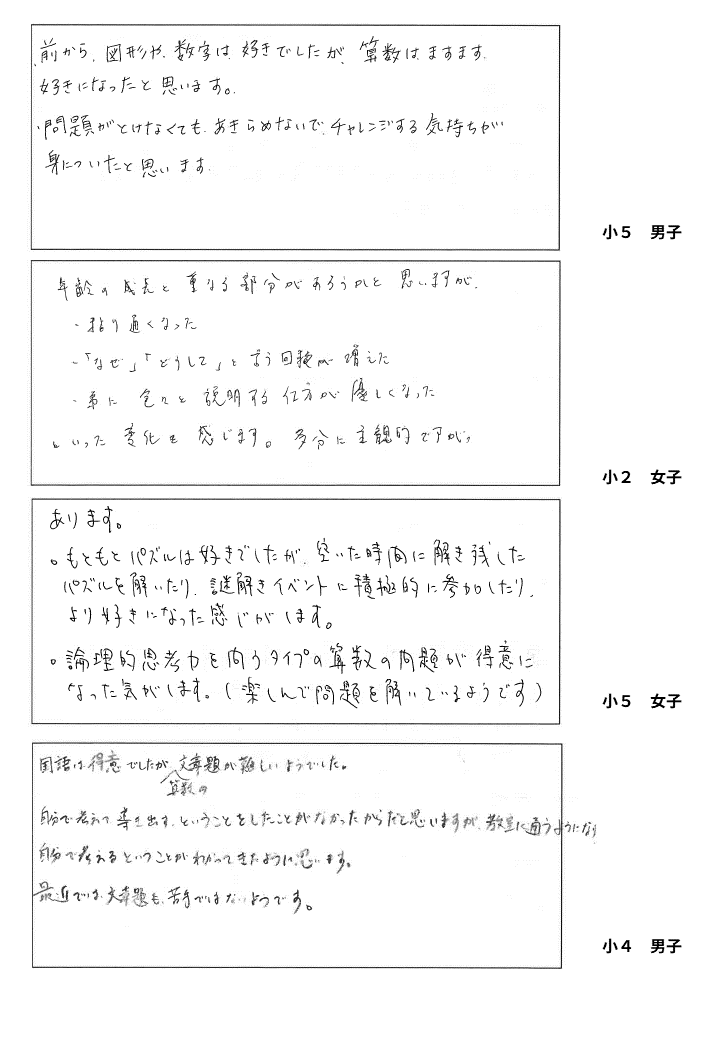 前から、図形や、数字は、好きでしたが、算数はますます
好きになったと思います。
・問題がとけなくても、あきらめないで、チャレンジする気持ちが
身についたと思います。
小５　男子
年齢の成長と重なる部分があろうかと思いますが、
・粘り強くなった
・「なぜ」「どうして」と言う回数が増えた
・弟に色々と説明する仕方が優しくなった
といった変化を感じます。多分に主観的ですがっ
小２　女子
あります。
○もともとパズルは好きでしたが、空いた時間に解き残した
パズルを解いたり、謎解きイベントに積極的に参加したり、
より好きになった感じがします。
○論理的思考力を問うタイプの算数の問題が得意に
なった気がします。（楽しんで問題を解いているようです）
小５　女子
国語は得意でしたが、文章題が難しいようでした。
算数の
自分で考えて導き出す、ということをしたことがなかったからだと思いますが、教室に通うようになり
自分で考えるということがわかってきたように思います。
最近では、文章題も、苦手ではないようです。
小４　男子